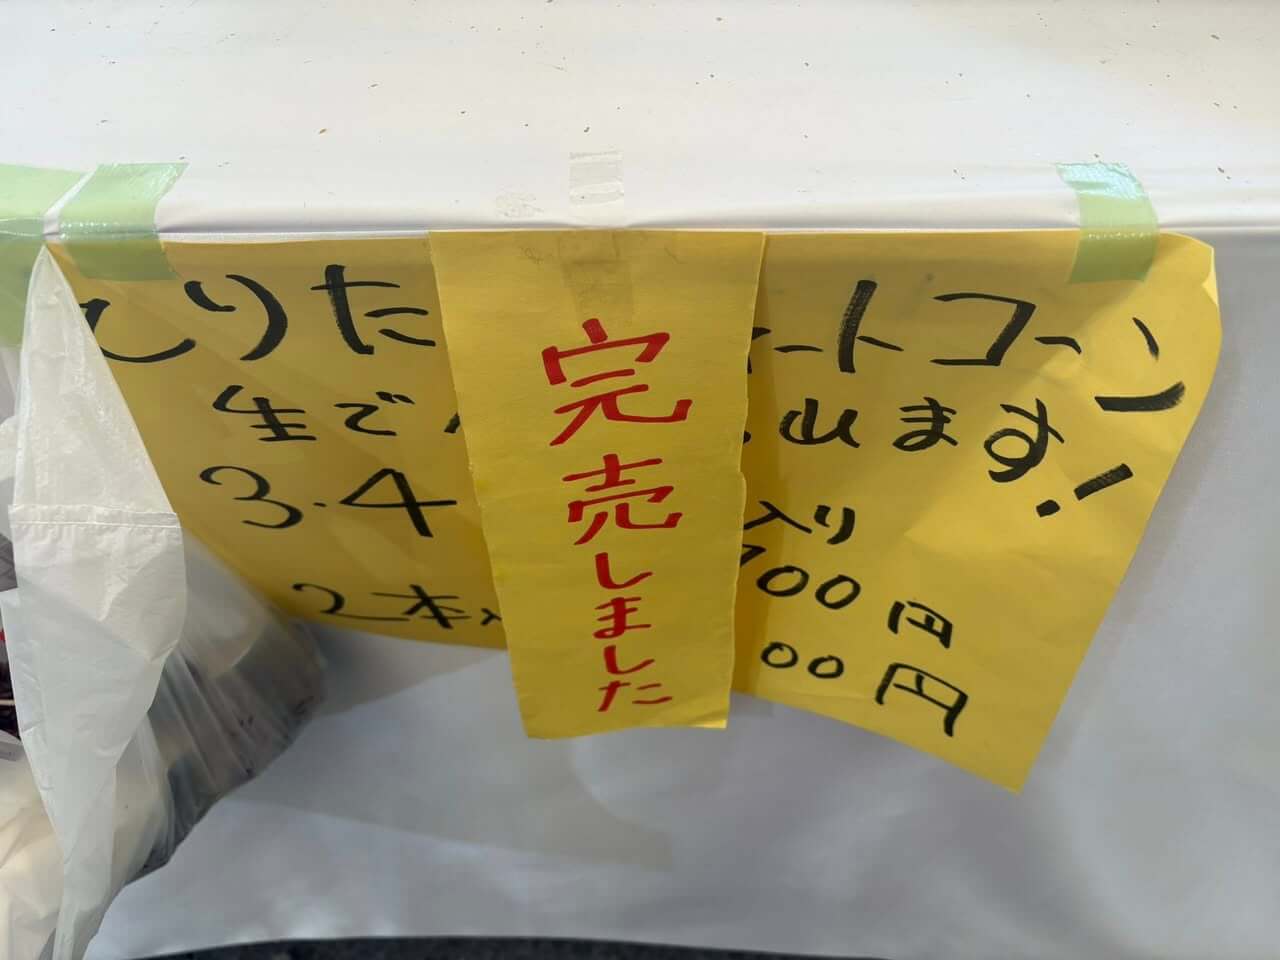 とりた ートコーン
生で 出ます!
3・4 入り
700円
2本 00円
完売しました